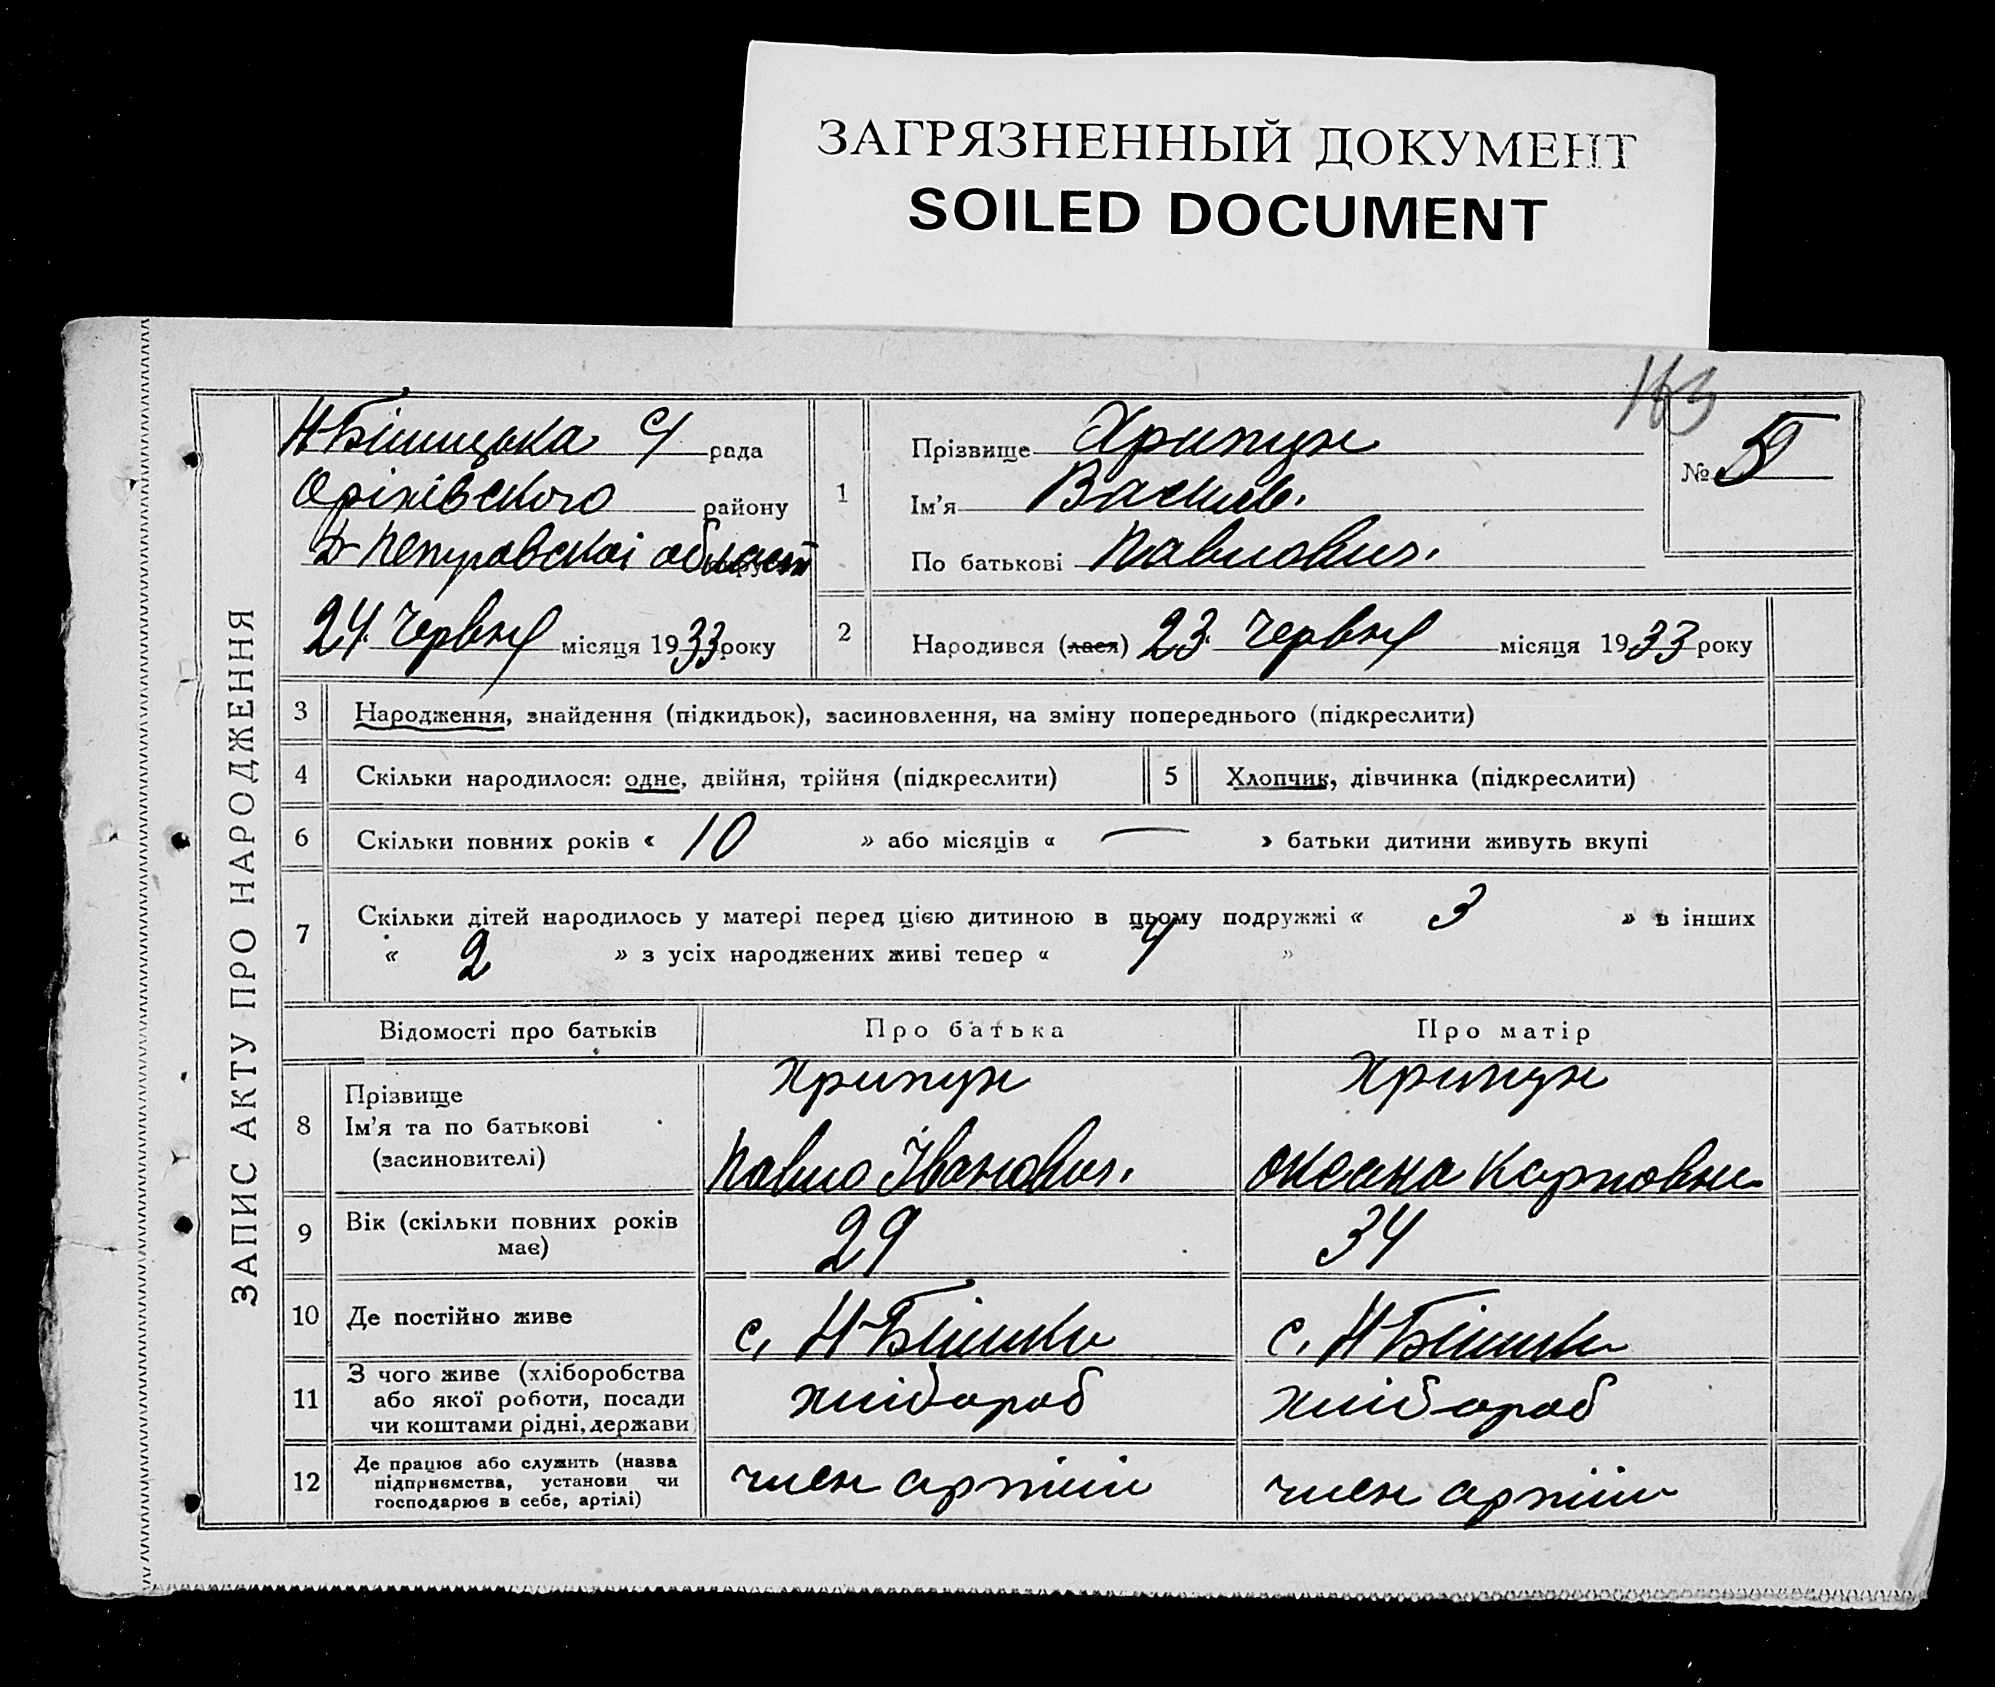 ЗАГРЯЗНЕННЫЙ ДОКУМЕНТ
SOILED DOCUMENT
163
ЗАПИС АКТУ ПРО НАРОДЖЕННЯ
Н-Бішицька с/ рада
Оріхівского району
Д-Петровскоі област
24. Червня місяця 1933 року
1
Прізвище Хрипун
Ім'я Василь.
По батькові Павлович.
№ 5
2 Народився (лася) 23. Червня місяця 1933 року
3 Народження, знайдення (підкидьок), засиновлення, на зміну попереднього (підкреслити)
4 Скільки народилося: одне, двійня, трійня (підкреслити)
5 Хлопчик, дівчинка (підкреслити)
6 Скільки повних років « 10 » або місяців « — » батьки дитини живуть вкупі
7 Скільки дітей народилось у матері перед цією дитиною в цьому подружжі « 3 » в інших
« 2 » з усіх народжених живі тепер « 4 »
Відомості про батьків Про батька Про матір
8 Прізвище Хрипун Хрипун
Ім'я та по батькові Павло Іванович. Оксана Карповни
(засиновителі)
9 Вік (скільки повних років 29 34
має)
10 Де постійно живе с. Н-Бішки с. Н Бішки
11 З чого живе (хліборобства хлібороб хлібороб
або якої роботи, посади
чи коштами рідні, держави
12 Де працює або служить (назва член артіли член артіли
підприємства, установи чи
господарює в себе, артілі)